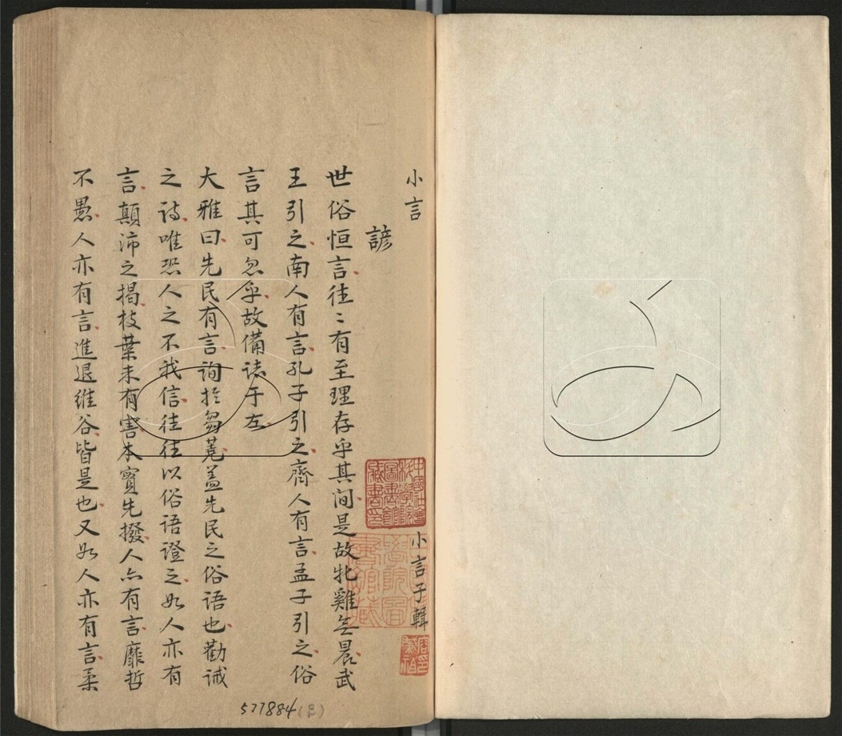 小言
小言子輯
諺
世俗恒言往〻有至理存乎其间是故牝雞無晨武
王引之南人有言孔子引之齊人有言孟子引之俗
言其可忽乎故備誌于左
大雅曰先民有言詢於芻蕘盖先民之俗語也勸诫
之诗唯恐人之不我信往往以俗语證之如人亦有
言顛沛之揭枝葉未有害本實先撥人亦有言靡哲
不愚人亦有言進退維谷皆是也又如人亦有言柔
577884